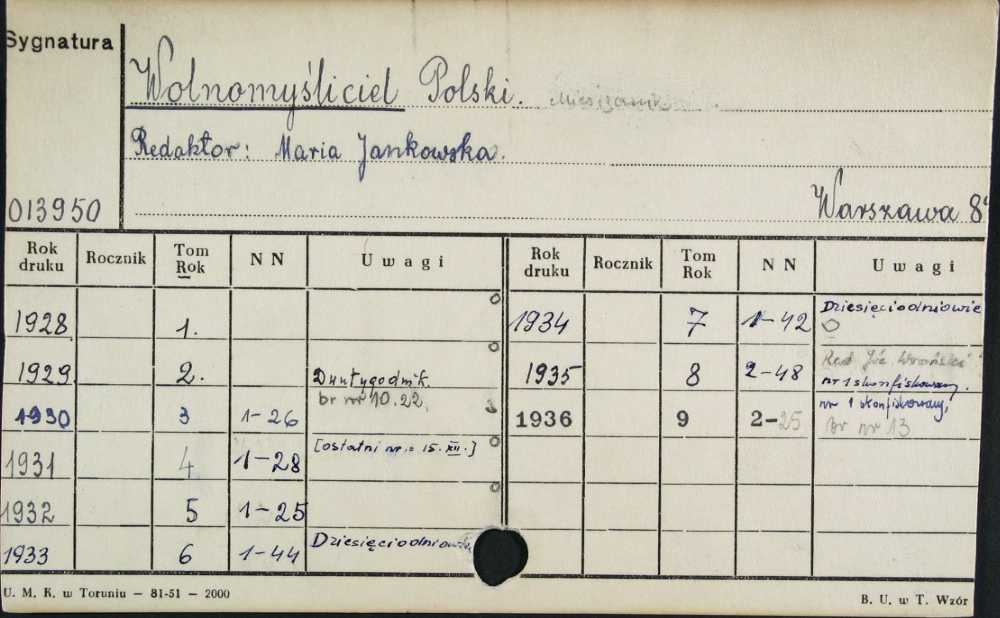 Sygnatura
Wolnomyśliciel Polski.
Redaktor: Maria Jankowska.
013950
Warszawa 8°
Rok druku Rocznik Tom Rok NN Uwagi Rok druku Rocznik Tom Rok NN Uwagi
1928 1. 1934 7 1-42 Dziesięciodniowie
1929 2. Dwutygodnik. 1935 8 2-48 Red. Józ. Wroński nr 1 skonfiskowany.
1930 3 1-26 br nr 10.22. 1936 9 2-25 nr 1 skonfiskowany, br nr 13
1931 4 1-28 [ostatni nr: 15.XII.]
1932 5 1-25
1933 6 1-44
U. M. K. w Toruniu – 81-51 – 2000
B. U. w T. Wzór